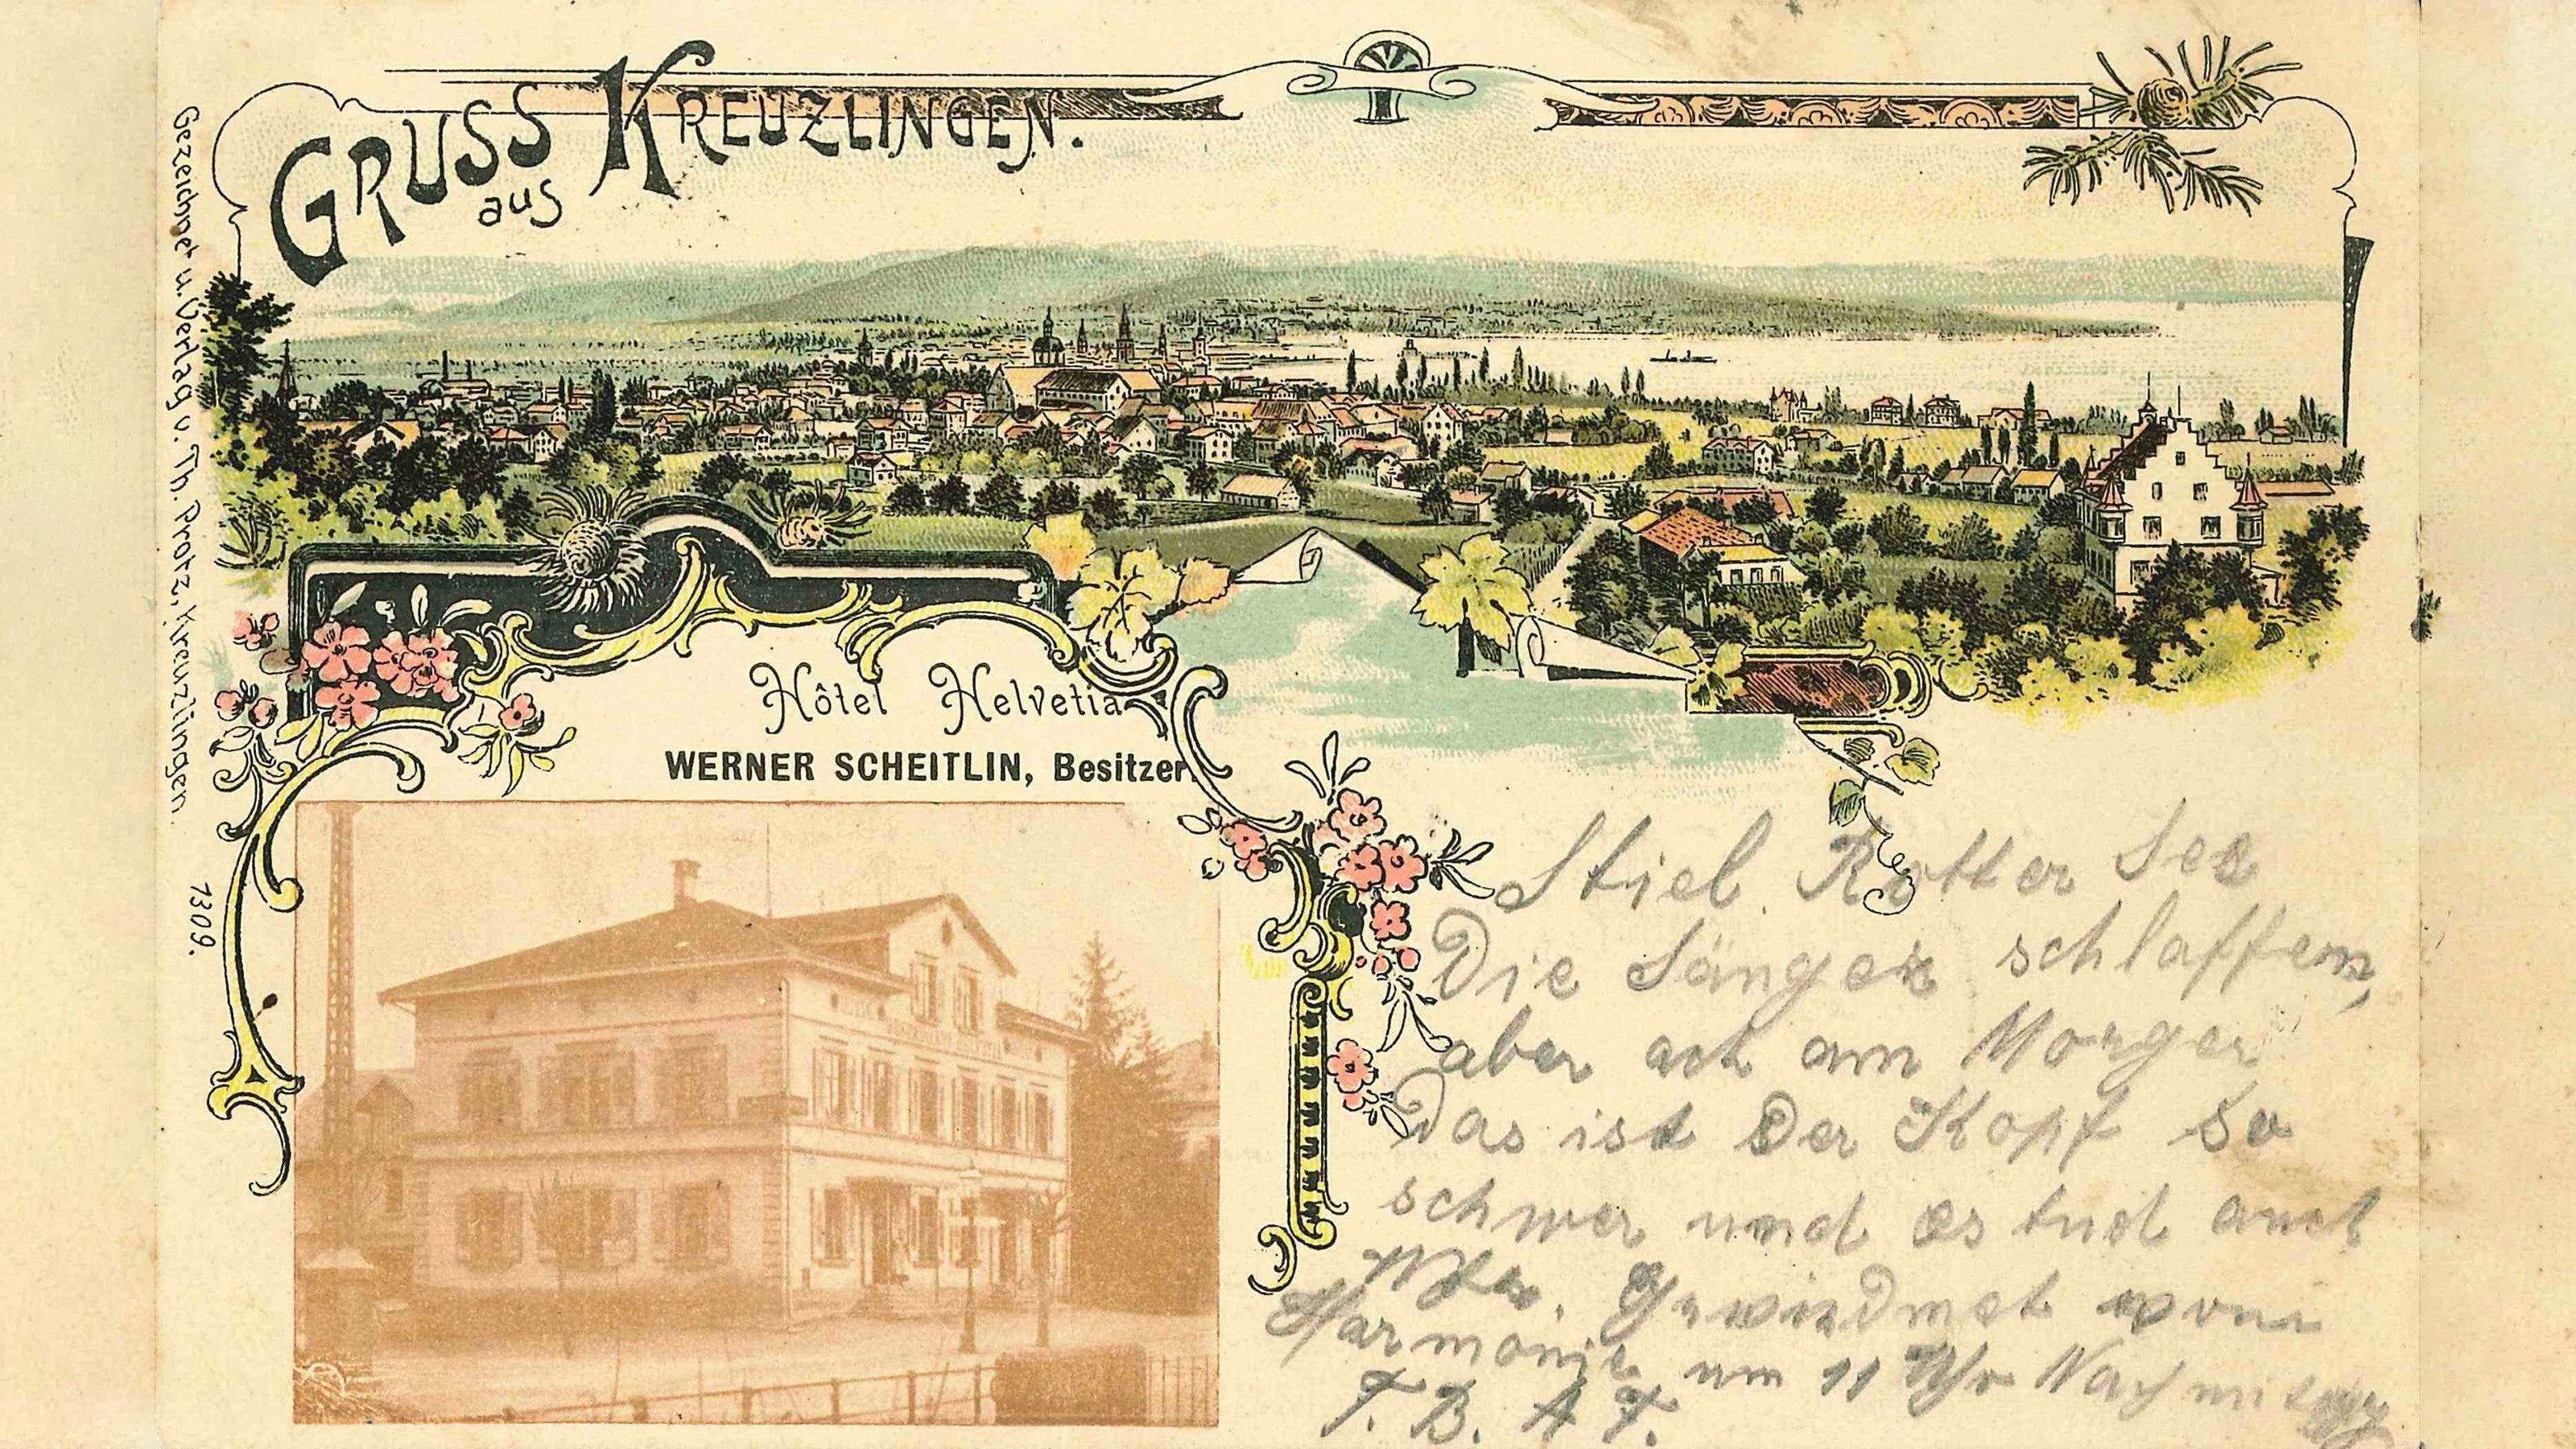 GRUSS aus KREUZLINGEN.
Gezeichnet u. Verlag v. Th. Protz, Kreuzlingen.
7309.
Hôtel Helvetia
WERNER SCHEITLIN, Besitzer.
Stiel See
Die Sänger schlaffen,
aber ach am Morgen
Das ist Der Kopf so
schwer und es tud auch
Gewidmet
Harmonie um 11 Uhr Nachmittag
F. B. A F.